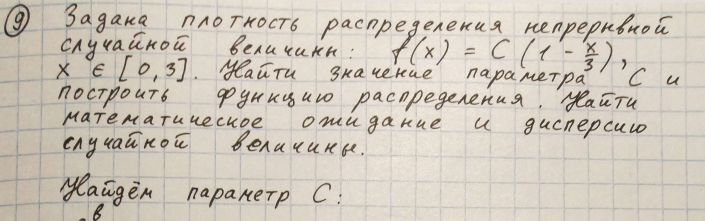 9 Задана плотность распределения непрерывной
случайной величины: f(x) = C (1 - x/3),
x ∈ [0, 3]. Найти значение параметра C и
построить функцию распределения. Найти
математическое ожидание и дисперсию
случайной величины.
Найдём параметр C:
в